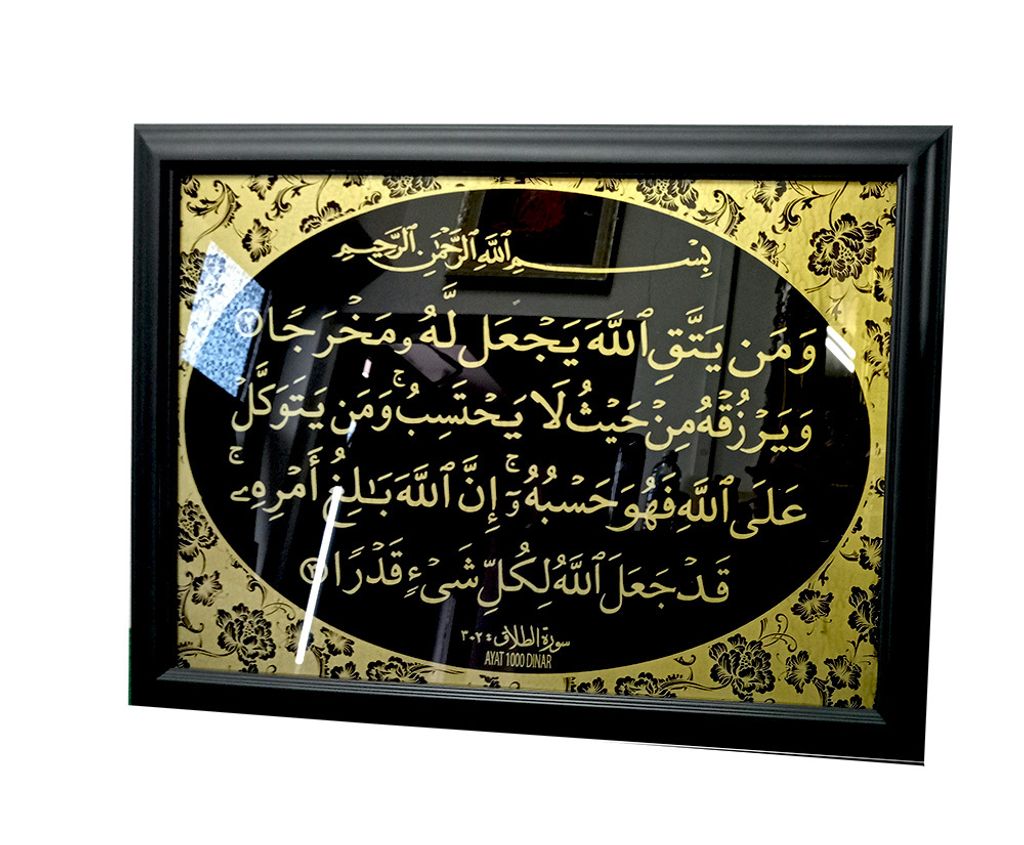 بِسْمِ ٱللَّهِ ٱلرَّحْمَٰنِ ٱلرَّحِيمِ
وَمَن يَتَّقِ ٱللَّهَ يَجْعَل لَّهُۥ مَخْرَجًا ۝٢
وَيَرْزُقْهُ مِنْ حَيْثُ لَا يَحْتَسِبُ ۚ وَمَن يَتَوَكَّلْ
عَلَى ٱللَّهِ فَهُوَ حَسْبُهُۥٓ ۚ إِنَّ ٱللَّهَ بَـٰلِغُ أَمْرِهِۦ ۚ
قَدْ جَعَلَ ٱللَّهُ لِكُلِّ شَىْءٍ قَدْرًا ۝٣
سورة الطلاق : ٢-٣
AYAT 1000 DINAR